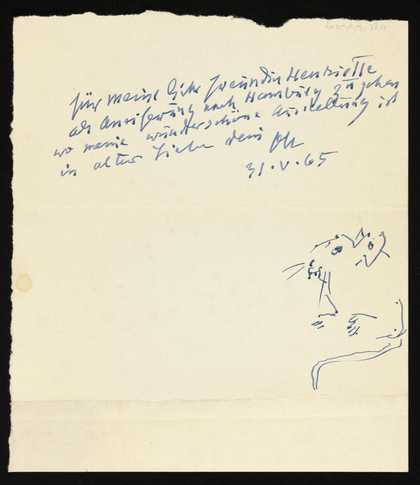 für meine liebe Freundin Henriette
als Anregung nach Hamburg zu gehen
wo meine wunderschöne Ausstellung ist
in alter Liebe dein
31.V.65